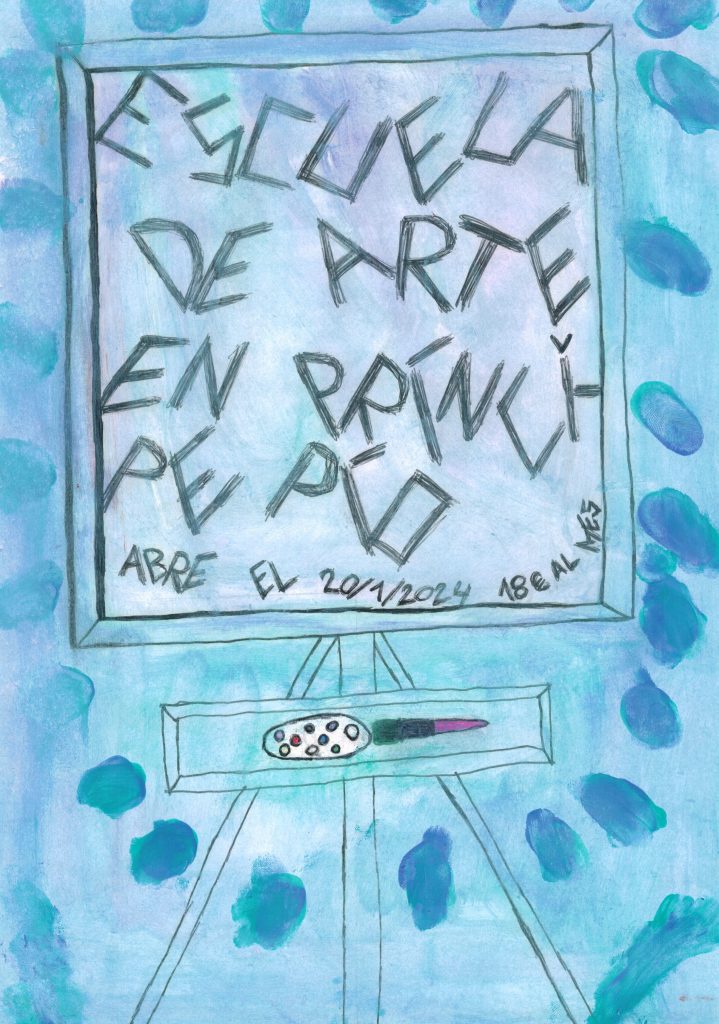 ESCUELA
DE ARTE
EN PRÍNCI-
PE PÍO
ABRE EL 20/1/2024 18€ AL MES